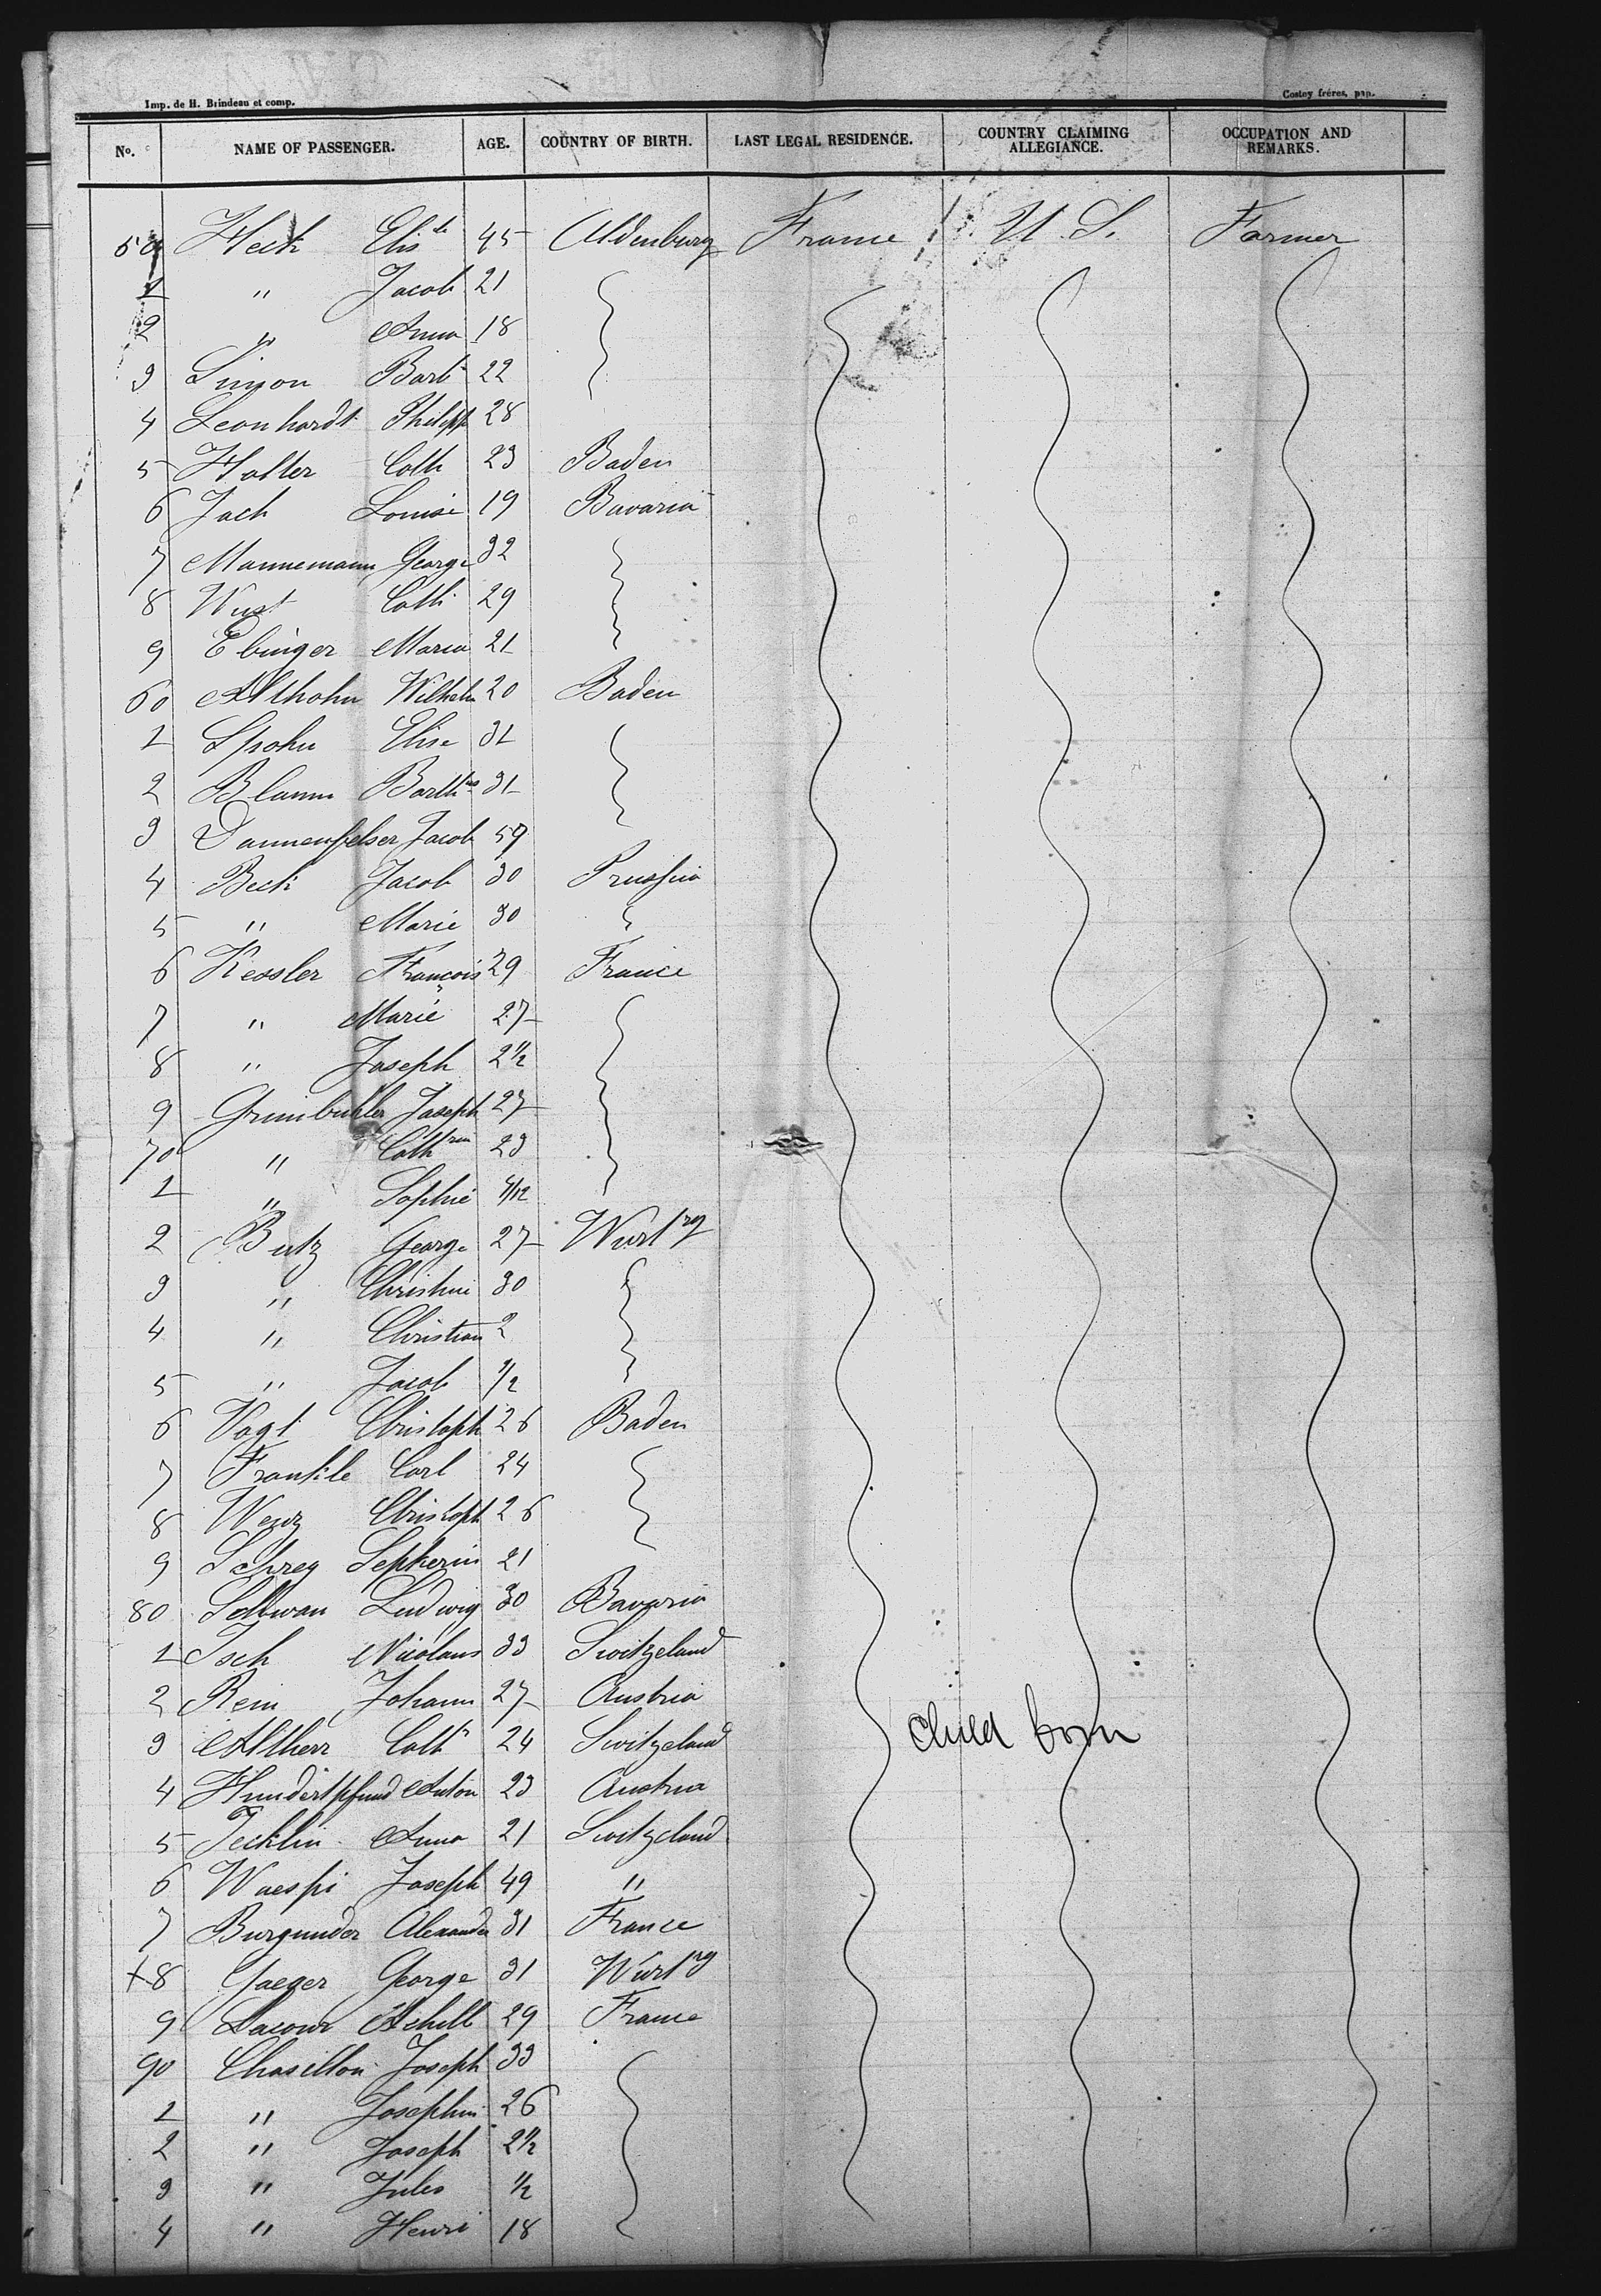 Imp. de H. Brindeau et comp. Costey frères, pap.
No. NAME OF PASSENGER. AGE. COUNTRY OF BIRTH. LAST LEGAL RESIDENCE. COUNTRY CLAIMING ALLEGIANCE. OCCUPATION AND REMARKS.
50 Heck Elis^te 45 Oldenburg France U. S. Farmer
1 " Jacob 21
2 " Anna 18
3 Simon Barb^a 22
4 Leonhardt Philipp 28
5 Halter Cath 23 Baden
6 Jach Louise 19 Bavaria
7 Mannemann George 32
8 Wust Cath 29
9 Ebinger Maria 21
60 Althohn Wilhelm 20 Baden
1 Spohn Elise 31
2 Blamm Barth^us 31
3 Dannenfelser Jacob 59
4 Beck Jacob 30 Prussia
5 " Marie 30
6 Kessler François 29 France
7 " Marie 27
8 " Joseph 2½
9 Grunbuhler Joseph 27
70 " Cath^rin 23
1 " Sophie 4/12
2 Butz George 27 Wurt^rg
3 " Christine 30
4 " Christian 2
5 " Jacob ½
6 Vogt Christoph 26 Baden
7 Frankle Carl 24
8 Wenz Christoph 26
9 Schrey Sepherin 21
80 Sellwan Ludwig 30 Bavaria
1 Isch Nicolaus 33 Switzeland
2 Rein Johann 27 Austria
3 Altherr Cath^n 24 Switzeland child born
4 Hundertpfund Anton 23 Austria
5 Jecklin Anna 21 Switzeland
6 Waespi Joseph 49 "
7 Burgunder Alexander 31 France
+8 Jaeger George 31 Wurt^rg
9 Lacour Achille 29 France
90 Chasillon Joseph 33
1 " Josephin 26
2 " Joseph 2½
3 " Jules ½
4 " Henri 18